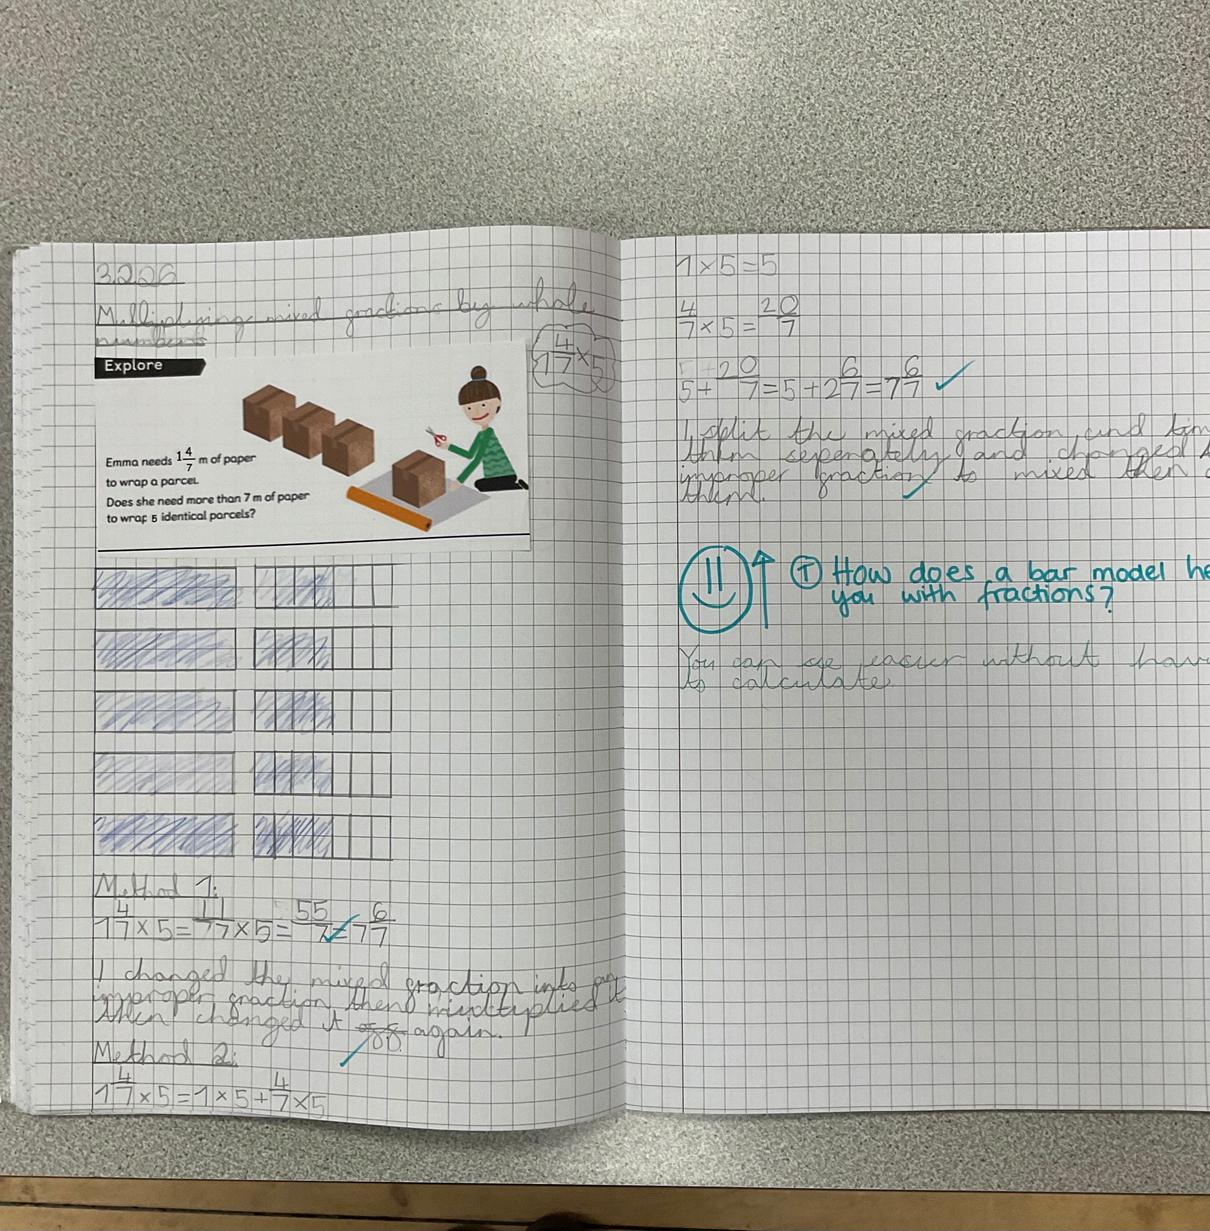 3.2.26
Multiplying mixed fractions by whole
numbers
Explore
1 4/7 × 5
Emma needs 1 4/7 m of paper
to wrap a parcel.
Does she need more than 7 m of paper
to wrap 5 identical parcels?
Method 1:
1 4/7 × 5 = 11/7 × 5 = 55/7 = 7 6/7
I changed the mixed fraction into an
improper fraction then multiplied it
then changed it again.
Method 2:
1 4/7 × 5 = 1 × 5 + 4/7 × 5
1 × 5 = 5
4/7 × 5 = 20/7
5 + 20/7 = 5 + 2 6/7 = 7 6/7
I split the mixed fraction and tim
them seperately and changed
improper fraction to mixed then
them.
T How does a bar model he
you with fractions?
You can see easier without hav
to calculate